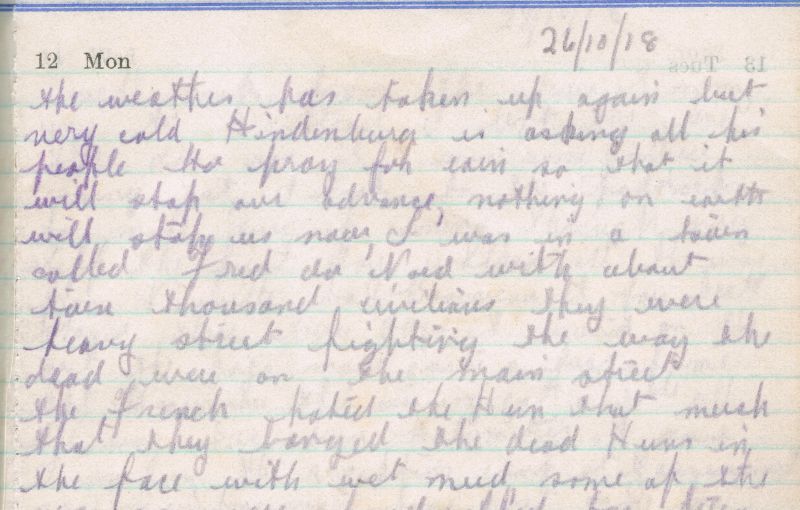 26/10/18
12 Mon
the weather has taken up again but
very cold Hindenburg is asking all his
people to pray for rain so that it
will stop our advance, nothing on earth
will stop us now, I was in a
called Fred do Nord with about
thousand civilians they were
heavy street fighting the way the
dead were on the main street
the French hated the Hun that much
that they the dead Huns in
the face with wet mud some of the